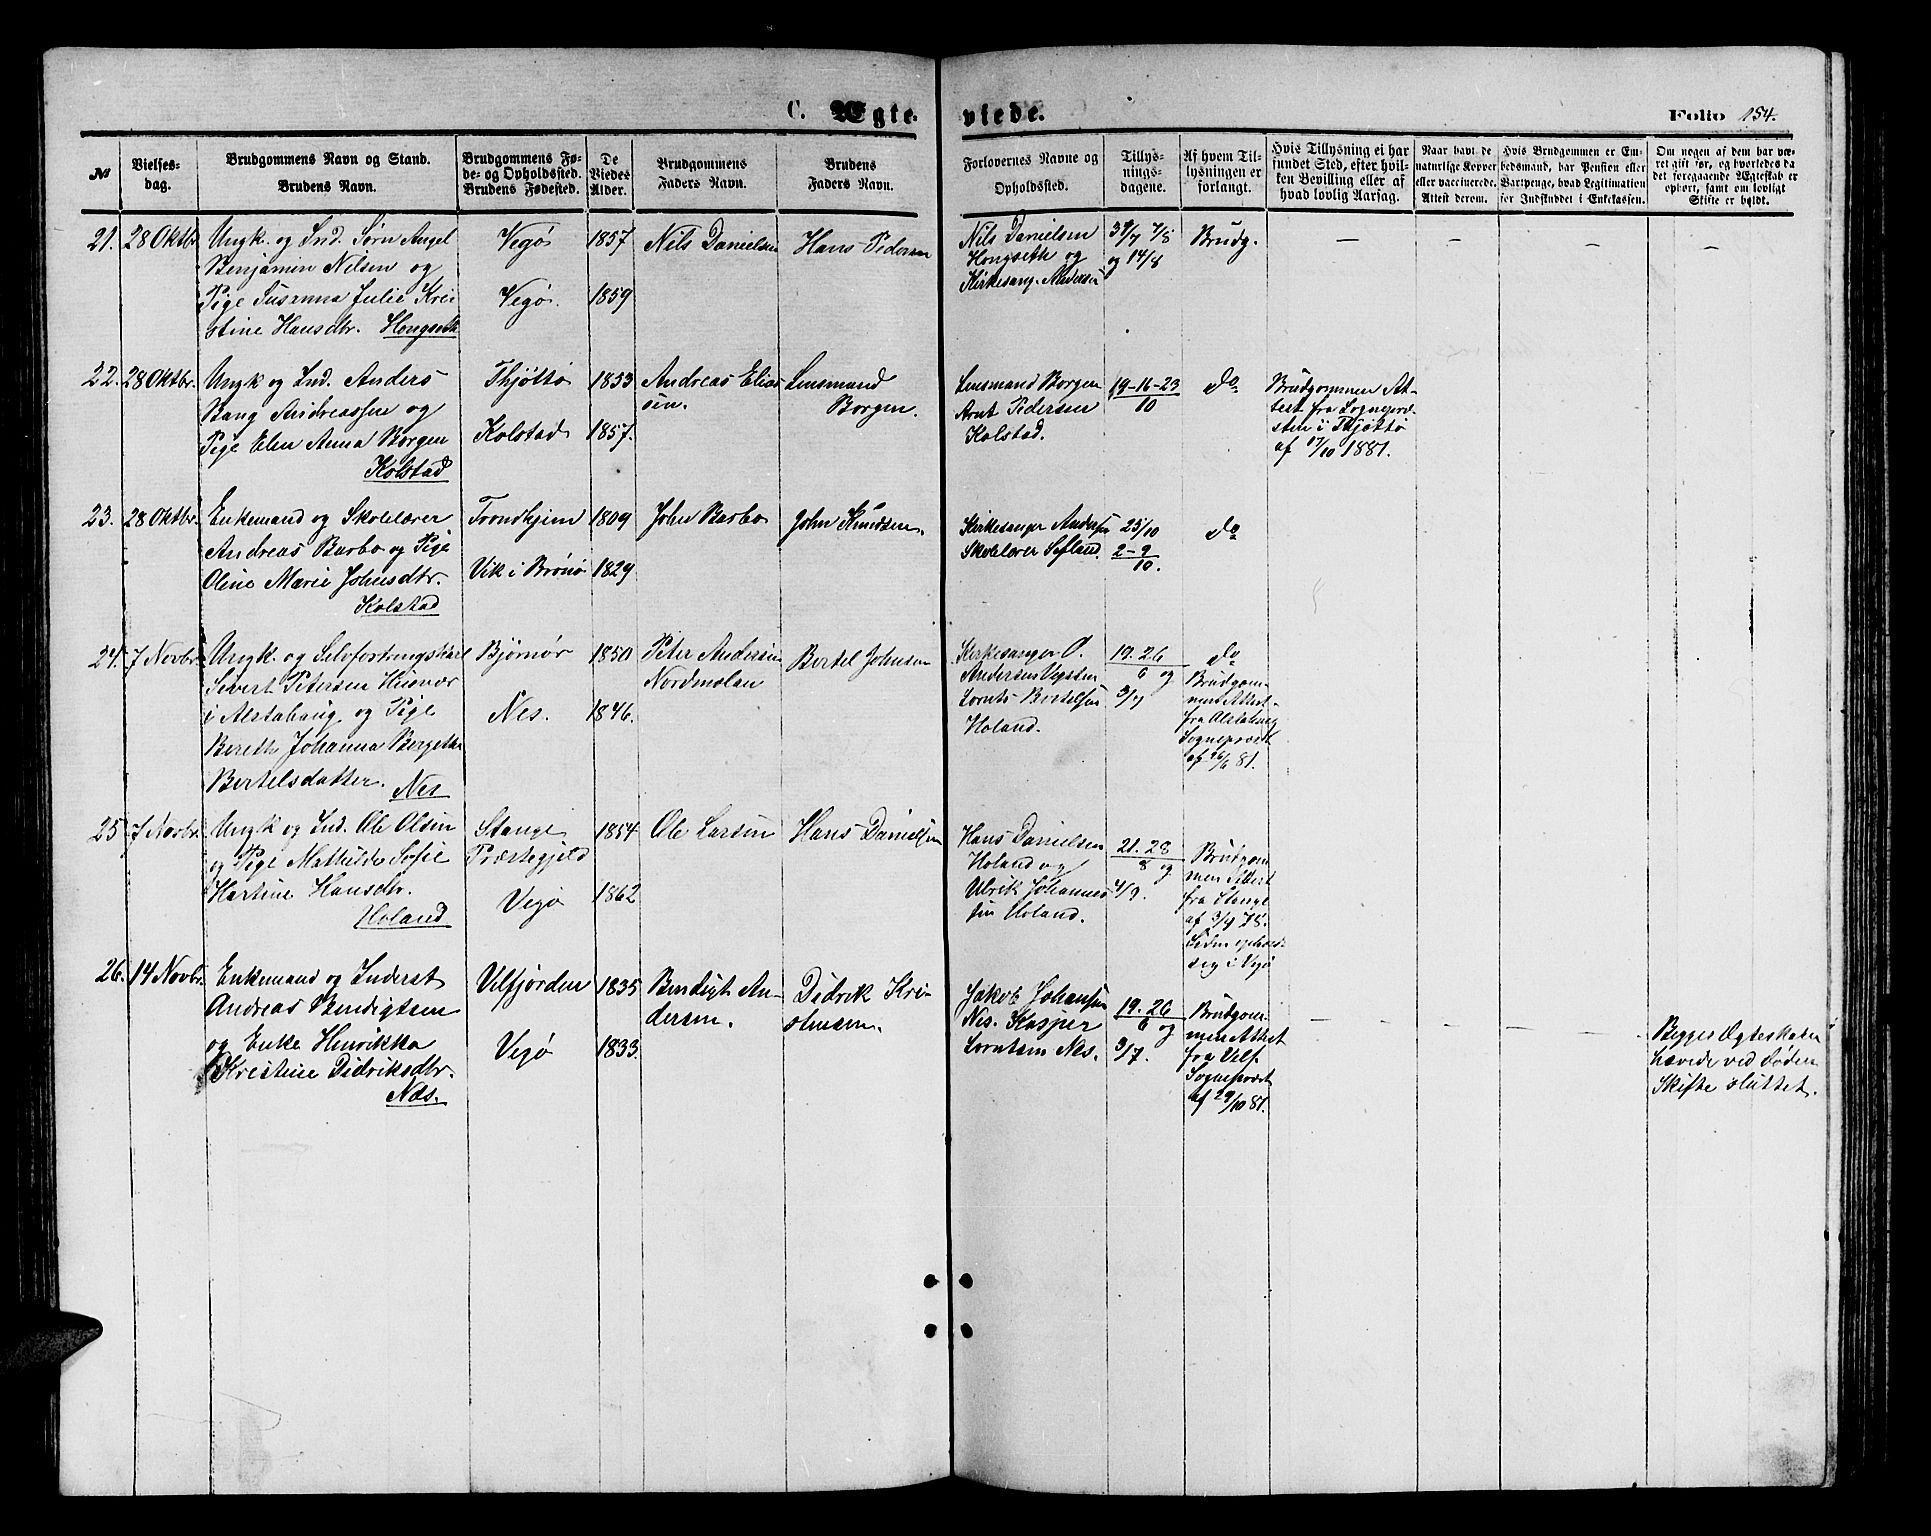 C. Ægte-
viede.
Folio 154.
№
Vielses-
dag.
Brudgommens Navn og Stand.
Brudens Navn.
Brudgommens Fø-
de- og Opholdssted.
Brudens Fødested.
De
Viedes
Alder.
Brudgommens
Faders Navn.
Brudens
Faders Navn.
Forlovernes Navne og
Opholdssted.
Tillys-
nings-
dagene.
Af hvem Til-
lysningen er
forlangt.
Hvis Tillysning ei har
fundet Sted, efter hvil-
ken Bevilling eller af
hvad lovlig Aarsag.
Naar havt de
naturlige Kopper
eller vaccinerede.
Attest derom.
Hvis Brudgommen er Em-
bedsmand, har Pension eller
Vartpenge, hvad Legitimation
for Indskuddet i Enkekassen.
Om nogen af dem har væ-
ret gift før, og hvorledes da
det foregaaende Ægteskab er
ophørt, samt om lovligt
Skifte er holdt.
21. 28 Oktbr.
Ungk. og Ind. Sørn Angel
Benjamin Nilsen og
Pige Susanna Julie Kri-
stine Hansdtr. Hongseth
Vegø
Vegø.
1857
1859
Nils Danielsen
Hans Pedersen
Nils Danielsen
Hongseth og
Kirkesang. Andersen
31/7 7/8
og 14/8
Brudg.
22. 28 Oktbr.
Ungk og Ind. Anders
Bang Andreassen og
Pige Elen Anna Borgen
Kolstad
Thjøttø
Kolstad
1853
1857.
Andreas Elias
sen.
Lensmand
Borgen.
Lensmand Borgen
Arnt Pedersen
Kolstad.
19-16-23
10
do
Brudgommen At-
test fra Sognepræ-
sten i Thjøttø
af 17/10 1881.
23. 28 Oktbr.
Enkemand og Skolelærer
Andreas Barbo og Pige
Oline Marie Johnsdtr.
Kolstad
Trondhjem
Vik i Brønø
1809
1829
John Barbo
John Knudsen.
Kirkesanger Andersen
Skolelærer
25/10
2-9
10.
do
24. 7 Novbr.
Ungk. og
Sivert Petersen
i Alstahaug og Pige
Bereth Johanna Bergethe
Bertelsdatter. Nes
Bjørnør
Nes.
1850
1846.
Peter Andersen
Nordmolan
Bertel Johnsen
Kirkesanger O.
Andersen
Lornts Bertelsen
Holand.
19. 26
6 og
3/7
do
Brudgom-
mens Attest
fra Alstahaug
Sognepræst
af 26/6 81.
25 7 Novbr.
Ungk og Ind. Ole Olsen
og Pige Mathilde Sofie
Hartine Hansdtr.
Holand
Stange
Præstegjeld
Vegø
1854
1862
Ole Larsen
Hans Danielsen
Hans Danielsen
Holand og
Ulrik Johannes
sen Holand.
21. 28
8 og
4/9.
Brudgom-
men Attest
fra Stange
af 3/9 78.
Siden opholdt
sig i Vegø
26. 14 Novbr.
Enkemand og Inderst
Andreas Bendigtsen
og Enke Henrikka
Kristine Didriksdtr.
Næs.
Velfjorden
Vegø
1835
1833.
Bendigt An-
dersen.
Didrik Kri-
stensen.
Jakob Johansen
Nes. Kasper
Lorntsen Nes.
19. 26
6 og
3/7.
Brudgom-
men Attest
fra Velf.
Sognepræst
af 29/10 81.
Begges Ægteskaber
hævede ved Døden
Skifte sluttet.